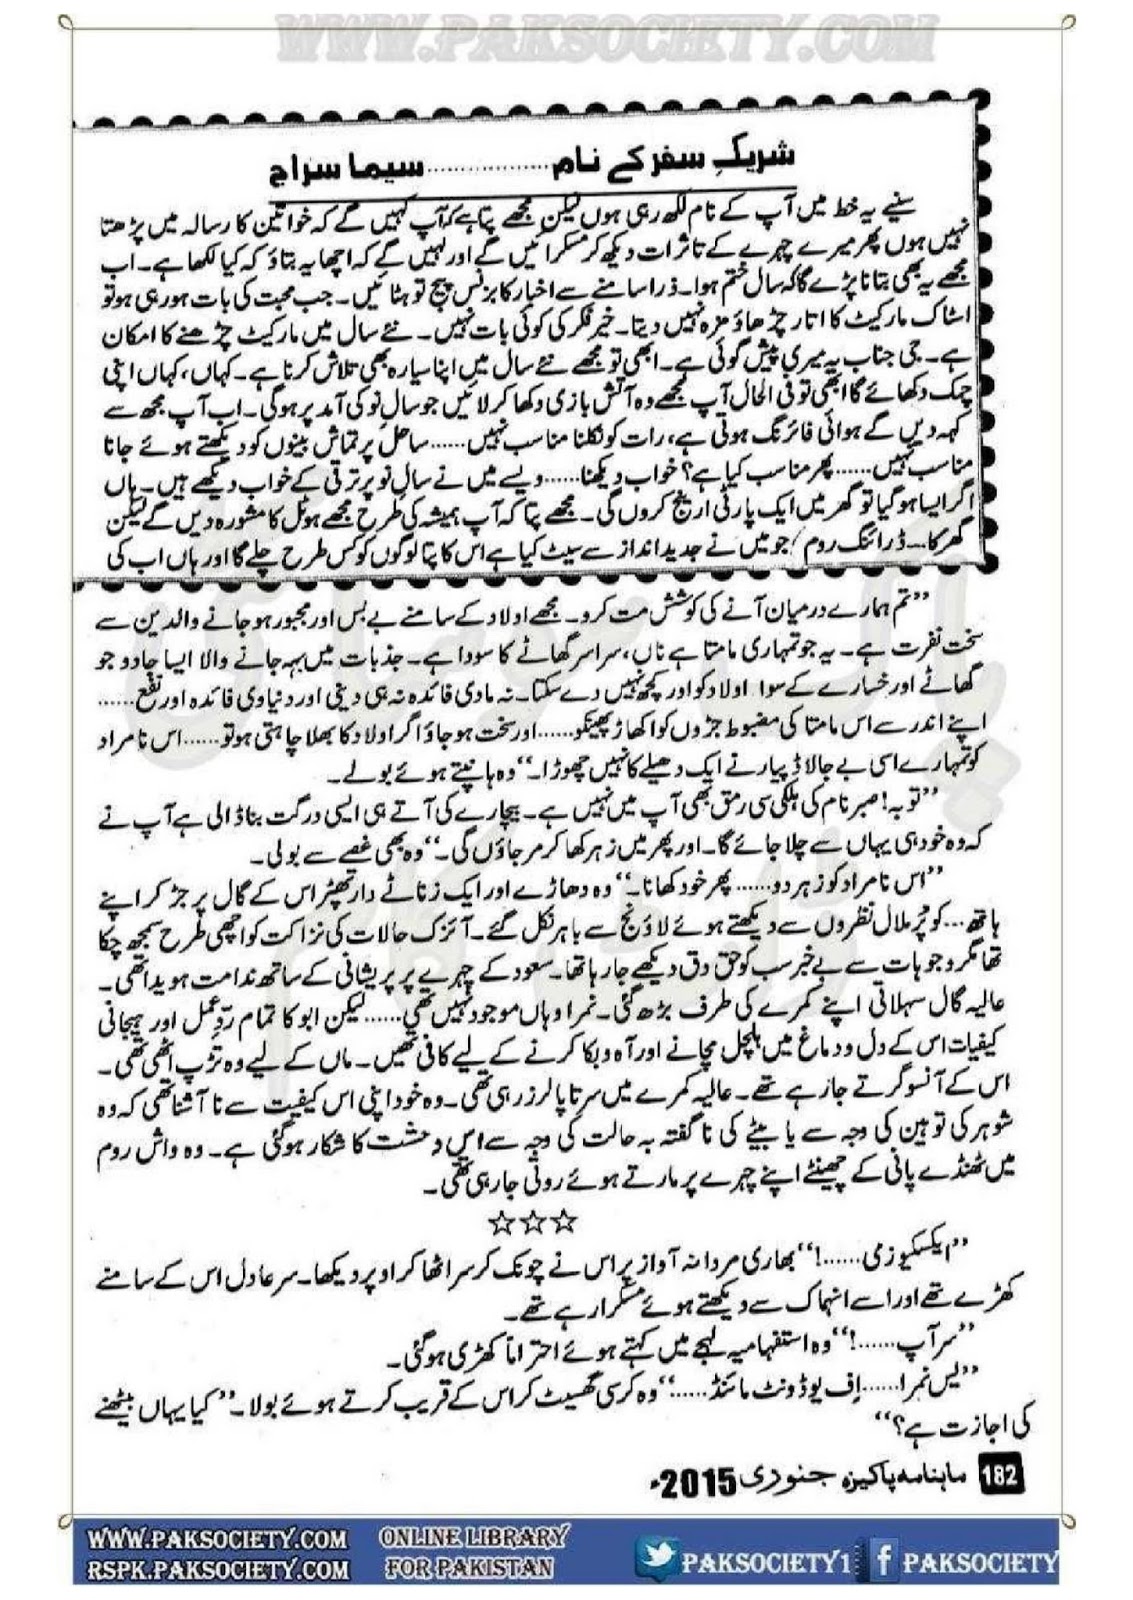 WWW.PAKSOCIETY.COM
شریکِ سفر کے نام ................ سیما سراج
سنیے یہ خط میں آپ کے نام لکھ رہی ہوں لیکن مجھے پتا ہے کہ آپ کہیں گے کہ خواتین کا رسالہ میں پڑھتا
نہیں ہوں پھر میرے چہرے کے تاثرات دیکھ کر مسکرائیں گے اور کہیں گے کہ اچھا یہ بتاؤ کہ کیا لکھا ہے۔ اب
مجھے یہ بھی بتانا پڑے گا کہ سال ختم ہوا۔ ذرا سامنے سے اخبار کا بزنس پیج تو ہٹائیں۔ جب محبت کی بات ہو رہی ہو تو
اسٹاک مارکیٹ کا اتار چڑھاؤ مزہ نہیں دیتا۔ خیر فکر کی کوئی بات نہیں۔ نئے سال میں مارکیٹ چڑھنے کا امکان
ہے۔ جی جناب یہ میری پیش گوئی ہے۔ ابھی تو مجھے نئے سال میں اپنا سیارہ بھی تلاش کرنا ہے۔ کہاں، کہاں اپنی
چمک دکھائے گا ابھی تو فی الحال آپ مجھے وہ آتش بازی دکھا کر لائیں جو سالِ نو کی آمد پر ہوگی۔ اب آپ مجھ سے
کہہ دیں گے ہوائی فائرنگ ہوتی ہے، رات کو نکلنا مناسب نہیں...... ساحل پر تماش بینوں کو دیکھتے ہوئے جانا
مناسب نہیں...... پھر مناسب کیا ہے؟ خواب دیکھنا...... ویسے میں نے سالِ نو پر ترقی کے خواب دیکھے ہیں۔ ہاں
اگر ایسا ہوگیا تو گھر میں ایک پارٹی ارینج کروں گی۔ مجھے پتا کہ آپ ہمیشہ کی طرح مجھے ہوٹل کا مشورہ دیں گے لیکن
گھر کا... ڈرائنگ روم جو میں نے جدید انداز سے سیٹ کیا ہے اس کا پتا لوگوں کو کس طرح چلے گا اور ہاں اب کی
”تم ہمارے درمیان آنے کی کوشش مت کرو۔ مجھے اولاد کے سامنے بے بس اور مجبور ہو جانے والدین سے
سخت نفرت ہے۔ یہ جو تمہاری مامتا ہے ناں، سراسر گھاٹے کا سودا ہے۔ جذبات میں بہہ جانے والا ایسا جادو جو
گھاٹے اور خسارے کے سوا اولاد کو اور کچھ نہیں دے سکتا۔ نہ مادی فائدہ نہ ہی دینی اور دنیاوی فائدہ اور نفع......
اپنے اندر سے اس مامتا کی مضبوط جڑوں کو اکھاڑ پھینکو...... اور سخت ہو جاؤ اگر اولاد کا بھلا چاہتی ہو تو...... اس نامراد
کو تمہارے اسی بے جا لاڈ پیار نے ایک دھیلے کا نہیں چھوڑا۔“ وہ ہانپتے ہوئے بولے۔
”توبہ! صبر نام کی ہلکی سی رمق بھی آپ میں نہیں ہے۔ بیچارے کی آتے ہی ایسی درگت بنا ڈالی ہے آپ نے
کہ وہ خود ہی یہاں سے چلا جائے گا۔ اور پھر میں زہر کھا کر مر جاؤں گی۔“ وہ بھی غصے سے بولی۔
”اس نامراد کو زہر دو...... پھر خود کھانا۔“ وہ دھاڑے اور ایک زناٹے دار تھپڑ اس کے گال پر جڑ کر اپنے
ہاتھ... کو پُر ملال نظروں سے دیکھتے ہوئے لاؤنج سے باہر نکل گئے۔ آئزک حالات کی نزاکت کو اچھی طرح سمجھ چکا
تھا مگر وجوہات سے بے خبر سب کو حق دق دیکھے جا رہا تھا۔ سعود کے چہرے پر پریشانی کے ساتھ ندامت ہویدا تھی۔
عالیہ گال سہلاتی اپنے کمرے کی طرف بڑھ گئی۔ نمرا وہاں موجود نہیں تھی...... لیکن ابو کا تمام ردِّ عمل اور ہیجانی
کیفیات اس کے دل و دماغ میں ہلچل مچانے اور آہ و بکا کرنے کے لیے کافی تھیں۔ ماں کے لیے وہ تڑپ اٹھی تھی۔
اس کے آنسو گرتے جا رہے تھے۔ عالیہ کمرے میں سرتاپا لرز رہی تھی۔ وہ خود اپنی اس کیفیت سے نا آشنا تھی کہ وہ
شوہر کی توہین کی وجہ سے یا بیٹے کی ناگفتہ بہ حالت کی وجہ سے اس وحشت کا شکار ہوگئی ہے۔ وہ واش روم
میں ٹھنڈے پانی کے چھینٹے اپنے چہرے پر مارتے ہوئے روتی جا رہی تھی۔
☆☆☆
”ایکسکیوزمی......!“ بھاری مردانہ آواز پر اس نے چونک کر سر اٹھا کر اوپر دیکھا۔ سر عادل اس کے سامنے
کھڑے تھے اور اسے انہماک سے دیکھتے ہوئے مسکرا رہے تھے۔
”سر آپ......!“ وہ استفہامیہ لہجے میں کہتے ہوئے احتراماً کھڑی ہوگئی۔
”یس نمرا...... اِف یو ڈونٹ مائنڈ......“ وہ کرسی گھسیٹ کر اس کے قریب کرتے ہوئے بولا۔ ”کیا یہاں بیٹھنے
کی اجازت ہے؟“
182 ماہنامہ پاکیزہ جنوری 2015ء
WWW.PAKSOCIETY.COM ONLINE LIBRARY PAKSOCIETY1 PAKSOCIETY
RSPK.PAKSOCIETY.COM FOR PAKISTAN